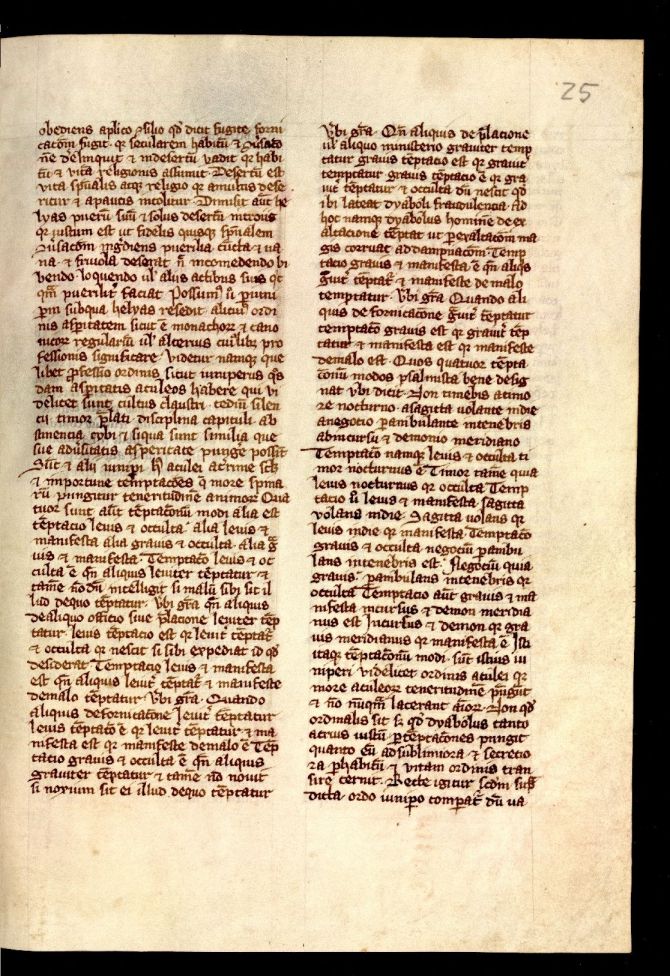 25
obediens aplico ⁊ filio qđ dicit fugite forni
catōm fugit · qr secularem habitū ⁊ ꝯuſatō
nē delinquit ⁊ indesertū vadit qr habi
tū ⁊ vitā religionis assumit · Desertū est
vita spūalis atqꝫ religio qr amultis dese
ritur ⁊ apaucis incolitur · Dimisit aūt he
lyas puerū suū ⁊ solus desertū introiuit
qr iustum est ut fidelis quisqꝫ spūalem
ꝯuſacōm ingdiens puerilia cūcta ⁊ va
na · ⁊ friuola deserat n̄ incomedendo bi
bendo loquendo ul' aliis actibus suis qc
qm̄ pueriliter faciat Possumꝰ ū p iuni
pm subqua helyas resedit alicui ordi
nis asp̄itatem sicut ē monachoꝝ ⁊ cano
nicoꝝ regulariū ul' alterius cuiuslibꝫ pro
fessionis significare videtur namqꝫ que
libet ꝓfessio ordinis sicut iuniperus qs
dam asp̄itatis aculeos habere qui vi
delicet sunt cultus claustri · tediū silen
cii timor p̄lati disciplina capituli ab
stinencia cybi ⁊ siqua sunt similia que
sue aduſitatis aspericate pungere possūt
Sūt ⁊ alii iunipi hꝰ aculei acrime scꝫ
⁊ importune temptacōes q̄ more spina
rū pungitur teneritudinē animoꝝ Qua
tuor sunt aūt tēptacōnū modi alia est
tēptacio leuis ⁊ occulta · alia leuis ⁊
manifesta alia grauis ⁊ occulta · alia g̃
uis ⁊ manifesta · Temptacō leuis ⁊ oc
culta ē qn̄ aliquis leuiter tēptatur ⁊
tamē nōdū intelligit si malū sibi sit il
lud dequo tēptatur · Vbi gr̄a qn̄ aliquis
dealiquo officio siue p̄lacione leuiter tēp
tatur · leuis tēptacio est qr leuiter tēptat᷑
⁊ occulta qr nescit si sibi expediat id qđ
desiderat Temptacio leuis ⁊ manifesta
est qn̄ aliquis leuit᷑ tēptat᷑ ⁊ manifeste
demalo tēptatur Vbi gr̄a · Quando
aliquis defornicatōne leuit᷑ tēptatur
leuis tēptatō ē qr leuit᷑ tēptatur ⁊ ma
nifesta est qr manifeste demalo ē Tēp
tacio grauis ⁊ occulta ē qn̄ aliquis
grauiter tēptatur ⁊ tamē ad nouit
si noxium sit ei illud dequo tēptatur
Vbi gr̄a · Qn̄ aliquis de p̄lacione
ul' aliquo ministerio grauiter temp
tatur grauis tēptacio est qr grauit᷑
temptatur grauis tēptacio ē qr gra
uit᷑ tēptatur ⁊ occulta dū nescit qđ
ibi lateat dyaboli fraudulencia · Ad
hoc namqꝫ dyabolus hominē de ex
altacione tēptat ut p exaltacōm ma
gis corruat addampnacōm · Temp
tacio grauis ⁊ manifesta · ē qn̄ aliqͥs
g̃uit᷑ tēptat᷑ ⁊ manifeste de malo
temptatur · Vbi gr̄a Quando ali
quis defornicacōne g̃uit᷑ tēptatur
temptatō grauis est qr grauit᷑ tēp
tatur ⁊ manifesta est qr manifeste
demalo est · Quos quatuor tēpta
tōnū modos psalmista bene desig
nat vbi dicit · Non timebis atimo
re nocturno · asagitta volante indie
anegotio pambulante intenebris
abincursu ⁊ demonio meridiano
Temptatō namqꝫ leuis ⁊ occulta ti
mor nocturnus ē Timor tamē quia
leuis nocturnus qr occulta Temp
tatio ū leuis ⁊ manifesta sagitta
volans indie · Sagitta volans qr
leuis indie qr manifesta Temptacō
grauis ⁊ occulta negociū pambu
lans intenebris est · Negociū quia
grauis · pambulans intenebris qr
occulta Temptacio aūt grauis ⁊ ma
nifesta incursus ⁊ demon meridia
nus est Incursus ⁊ demon qr gra
uis meridianus qr manifesta ē Isti
itaqꝫ tēptacōnū modi · sūt istius iu
niperi videlicet ordinis aculei qr
more aculeoꝝ teneritudinē pūgūt
⁊ nō nūqm̄ lacerant aīoꝝ · Non qđ
ordinalis sit sꝫ qđ dyabolus tanto
acrius iustū p tēptacōnes pungit
quanto eū adsublimiora ⁊ secretio
ra p habitū ⁊ vitam ordinis tran
sire cernit · Recte igitur scdm sup
dicta · ordo iunipo comparat᷑ dū va